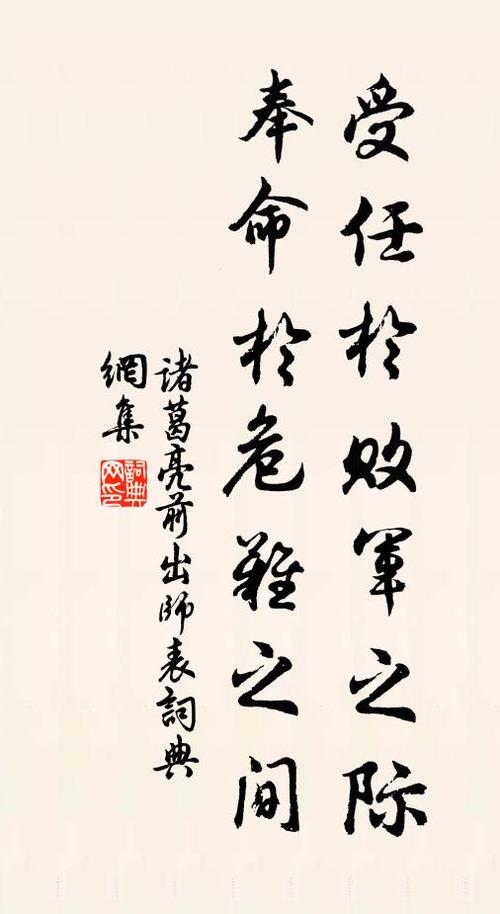 受任於败軍之际
奉命於危難之间
諸葛亮前出師表詞典
網集
詞典
网印